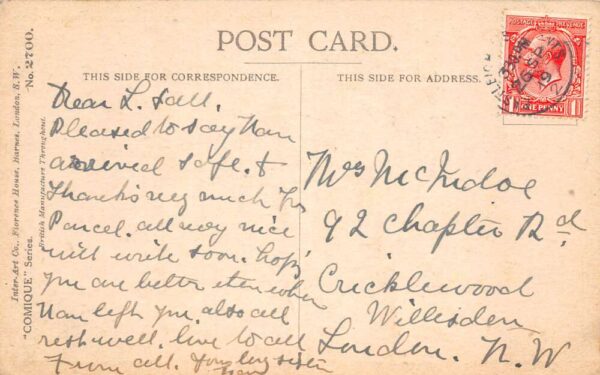 POST CARD.
THIS SIDE FOR CORRESPONDENCE.
THIS SIDE FOR ADDRESS.
Dear L. & all.
Pleased to say Nan
arrived safe. &
Thanks very much for
Parcel. all very nice
will write soon. hope
you are better then when
Nan left you. also all
rest well. love to all
From all. Your lov sister
Mrs McIndoe
92 Chapter Rd
Cricklewood
Willisden
London. N.W
POSTAGE REVENUE
ONE PENNY
1 1
Inter-Art Co., Florence House, Barnes, London, S.W.
"COMIQUE" Series. No. 2700.
British Manufacture Throughout.